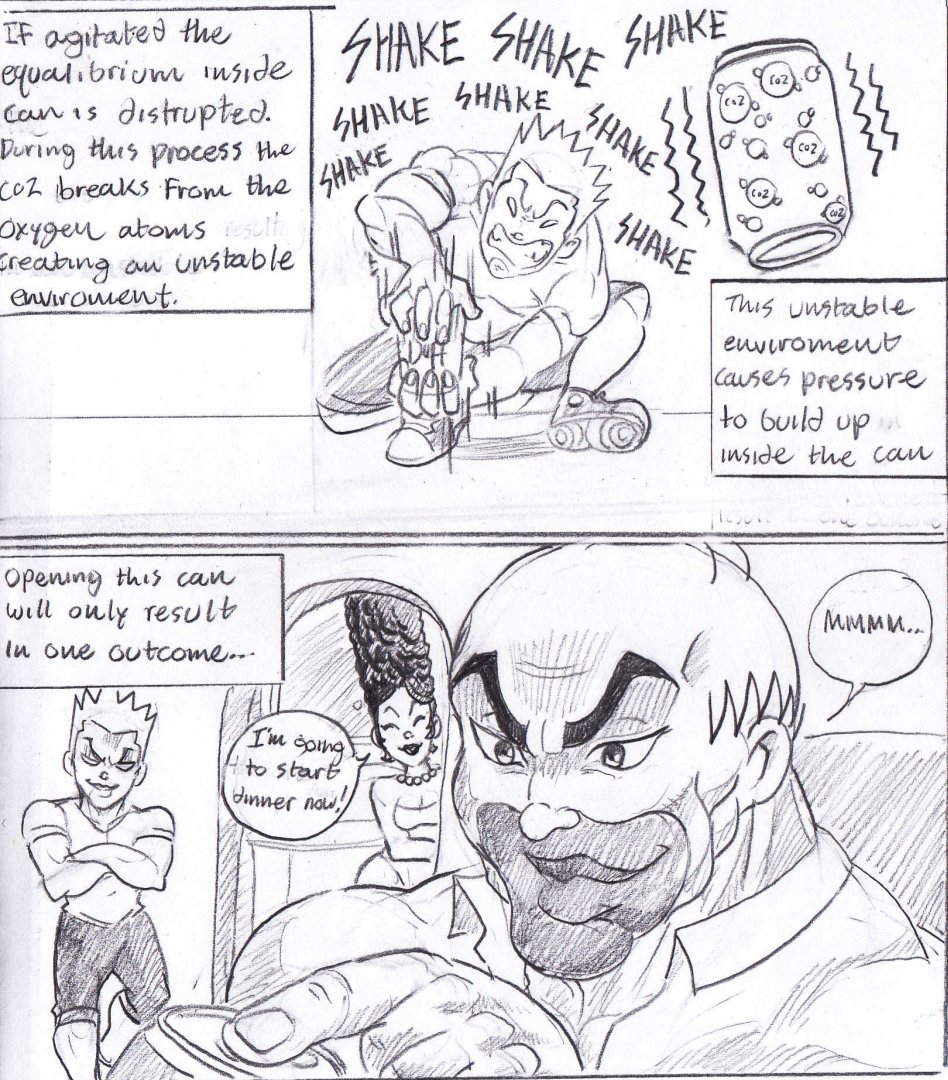 IF agitated the
equalibrium inside
can is distrupted.
During this process the
CO2 breaks from the
oxygen atoms
creating an unstable
enviroment.
SHAKE SHAKE SHAKE
SHAKE SHAKE SHAKE
SHAKE
SHAKE
CO2
CO2
CO2
CO2
CO2
Duff
This unstable
enviroment
causes pressure
to build up
inside the can
Opening this can
will only result
in one outcome...
I'm going
to start
dinner now!
MMMM...